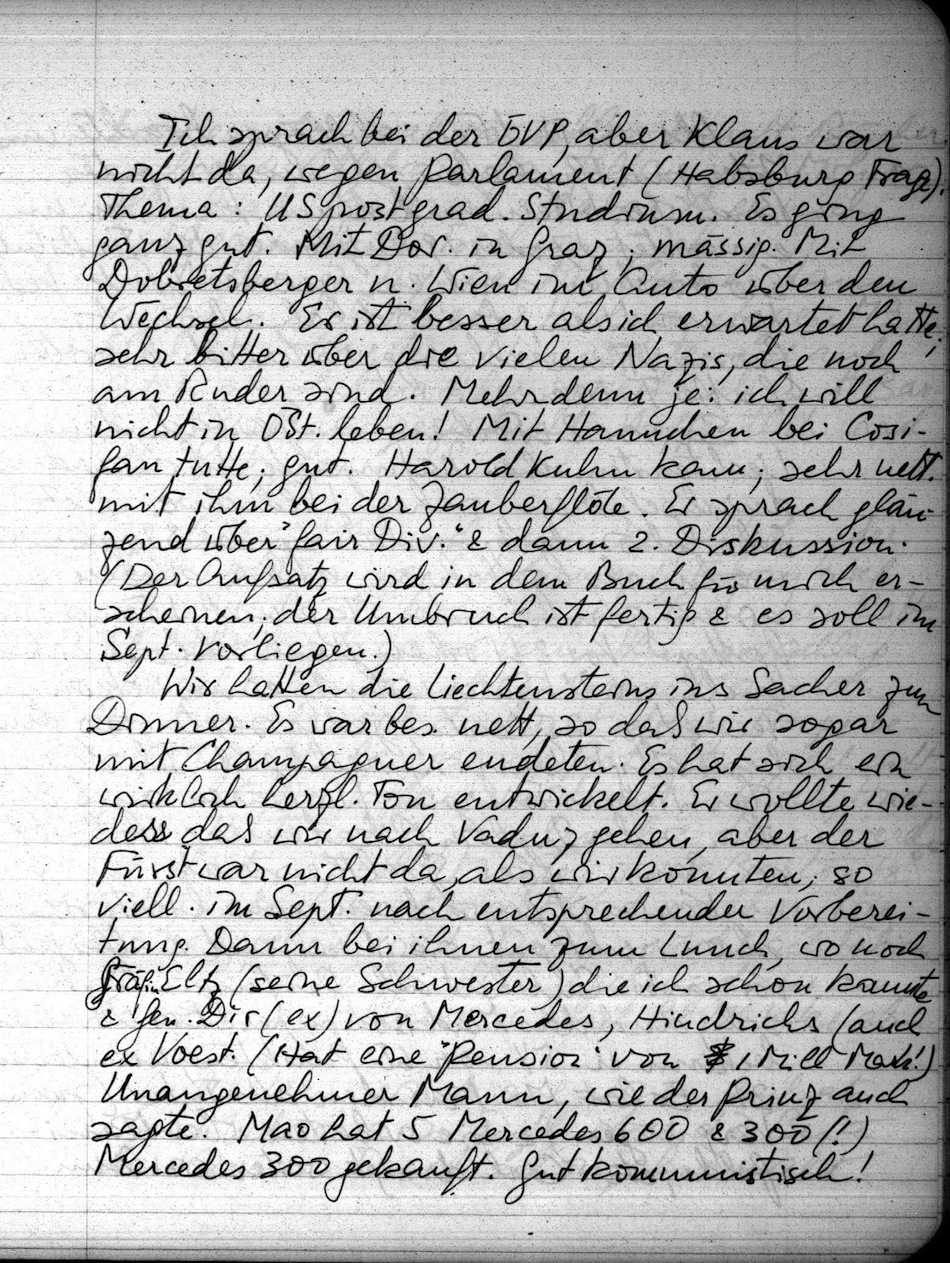 Ich sprach bei der ÖVP, aber Klaus war
nicht da, wegen Parlament (Habsburg Frage).
Thema: US postgrad. Studium. Es ging
ganz gut. Mit Dor. in Graz; mässig. Mit
Dobretsberger n. Wien im Auto über den
Wechsel. Er ist besser als ich erwartet hatte;
sehr bitter über die vielen Nazis, die noch
am Ruder sind. Mehr denn je: ich will
nicht in Öst. leben! Mit Hannchen bei Cosi-
fan tutte; gut. Harold Kuhn kam; sehr nett.
mit ihm bei der Zauberflöte. Er sprach glän-
zend über "fair Div." & dann 2. Diskussion.
(Der Aufsatz wird in dem Buch für mich er-
scheinen; der Umbruch ist fertig & es soll im
Sept. vorliegen.)
Wir hatten die Liechtensteins ins Sacher zum
Dinner. Es war bes. nett, so daß wir sogar
mit Champagner endeten. Es hat sich ein
wirklich herzl. Ton entwickelt. Er wollte wie-
der das wir nach Vaduz gehen, aber der
Fürst war nicht da, als wir konnten; so
viell. im Sept. nach entsprechender Vorberei-
tung. Dann bei ihnen zum Lunch, wo noch
Gräfin Eltz (seine Schwester) die ich schon kannte
& Gen. Dir (ex) von Mercedes, Hindrichs (auch
ex Voest. (Hat eine "Pension" von 1 Mill Mark!)
Unangenehmer Mann, wie der Prinz auch
sagte. Mao hat 5 Mercedes 600 & 300 (!)
Mercedes 300 gekauft. Gut kommunistisch!